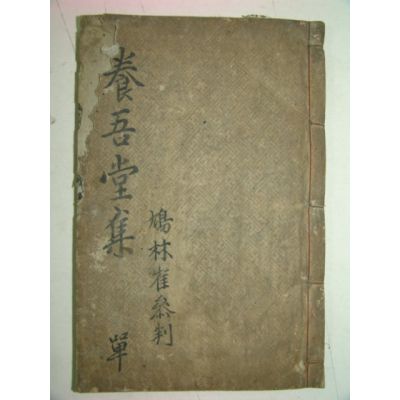 養吾堂集
鳩林崔叅判
單